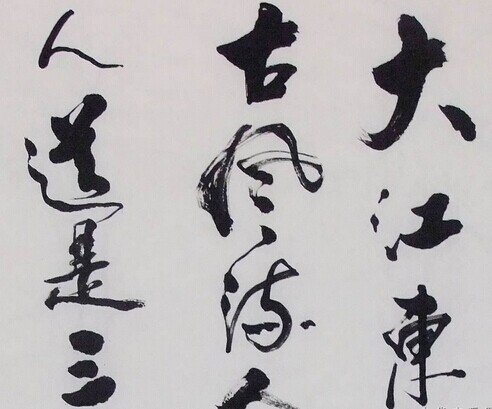 大江東
古風流人
人道是三